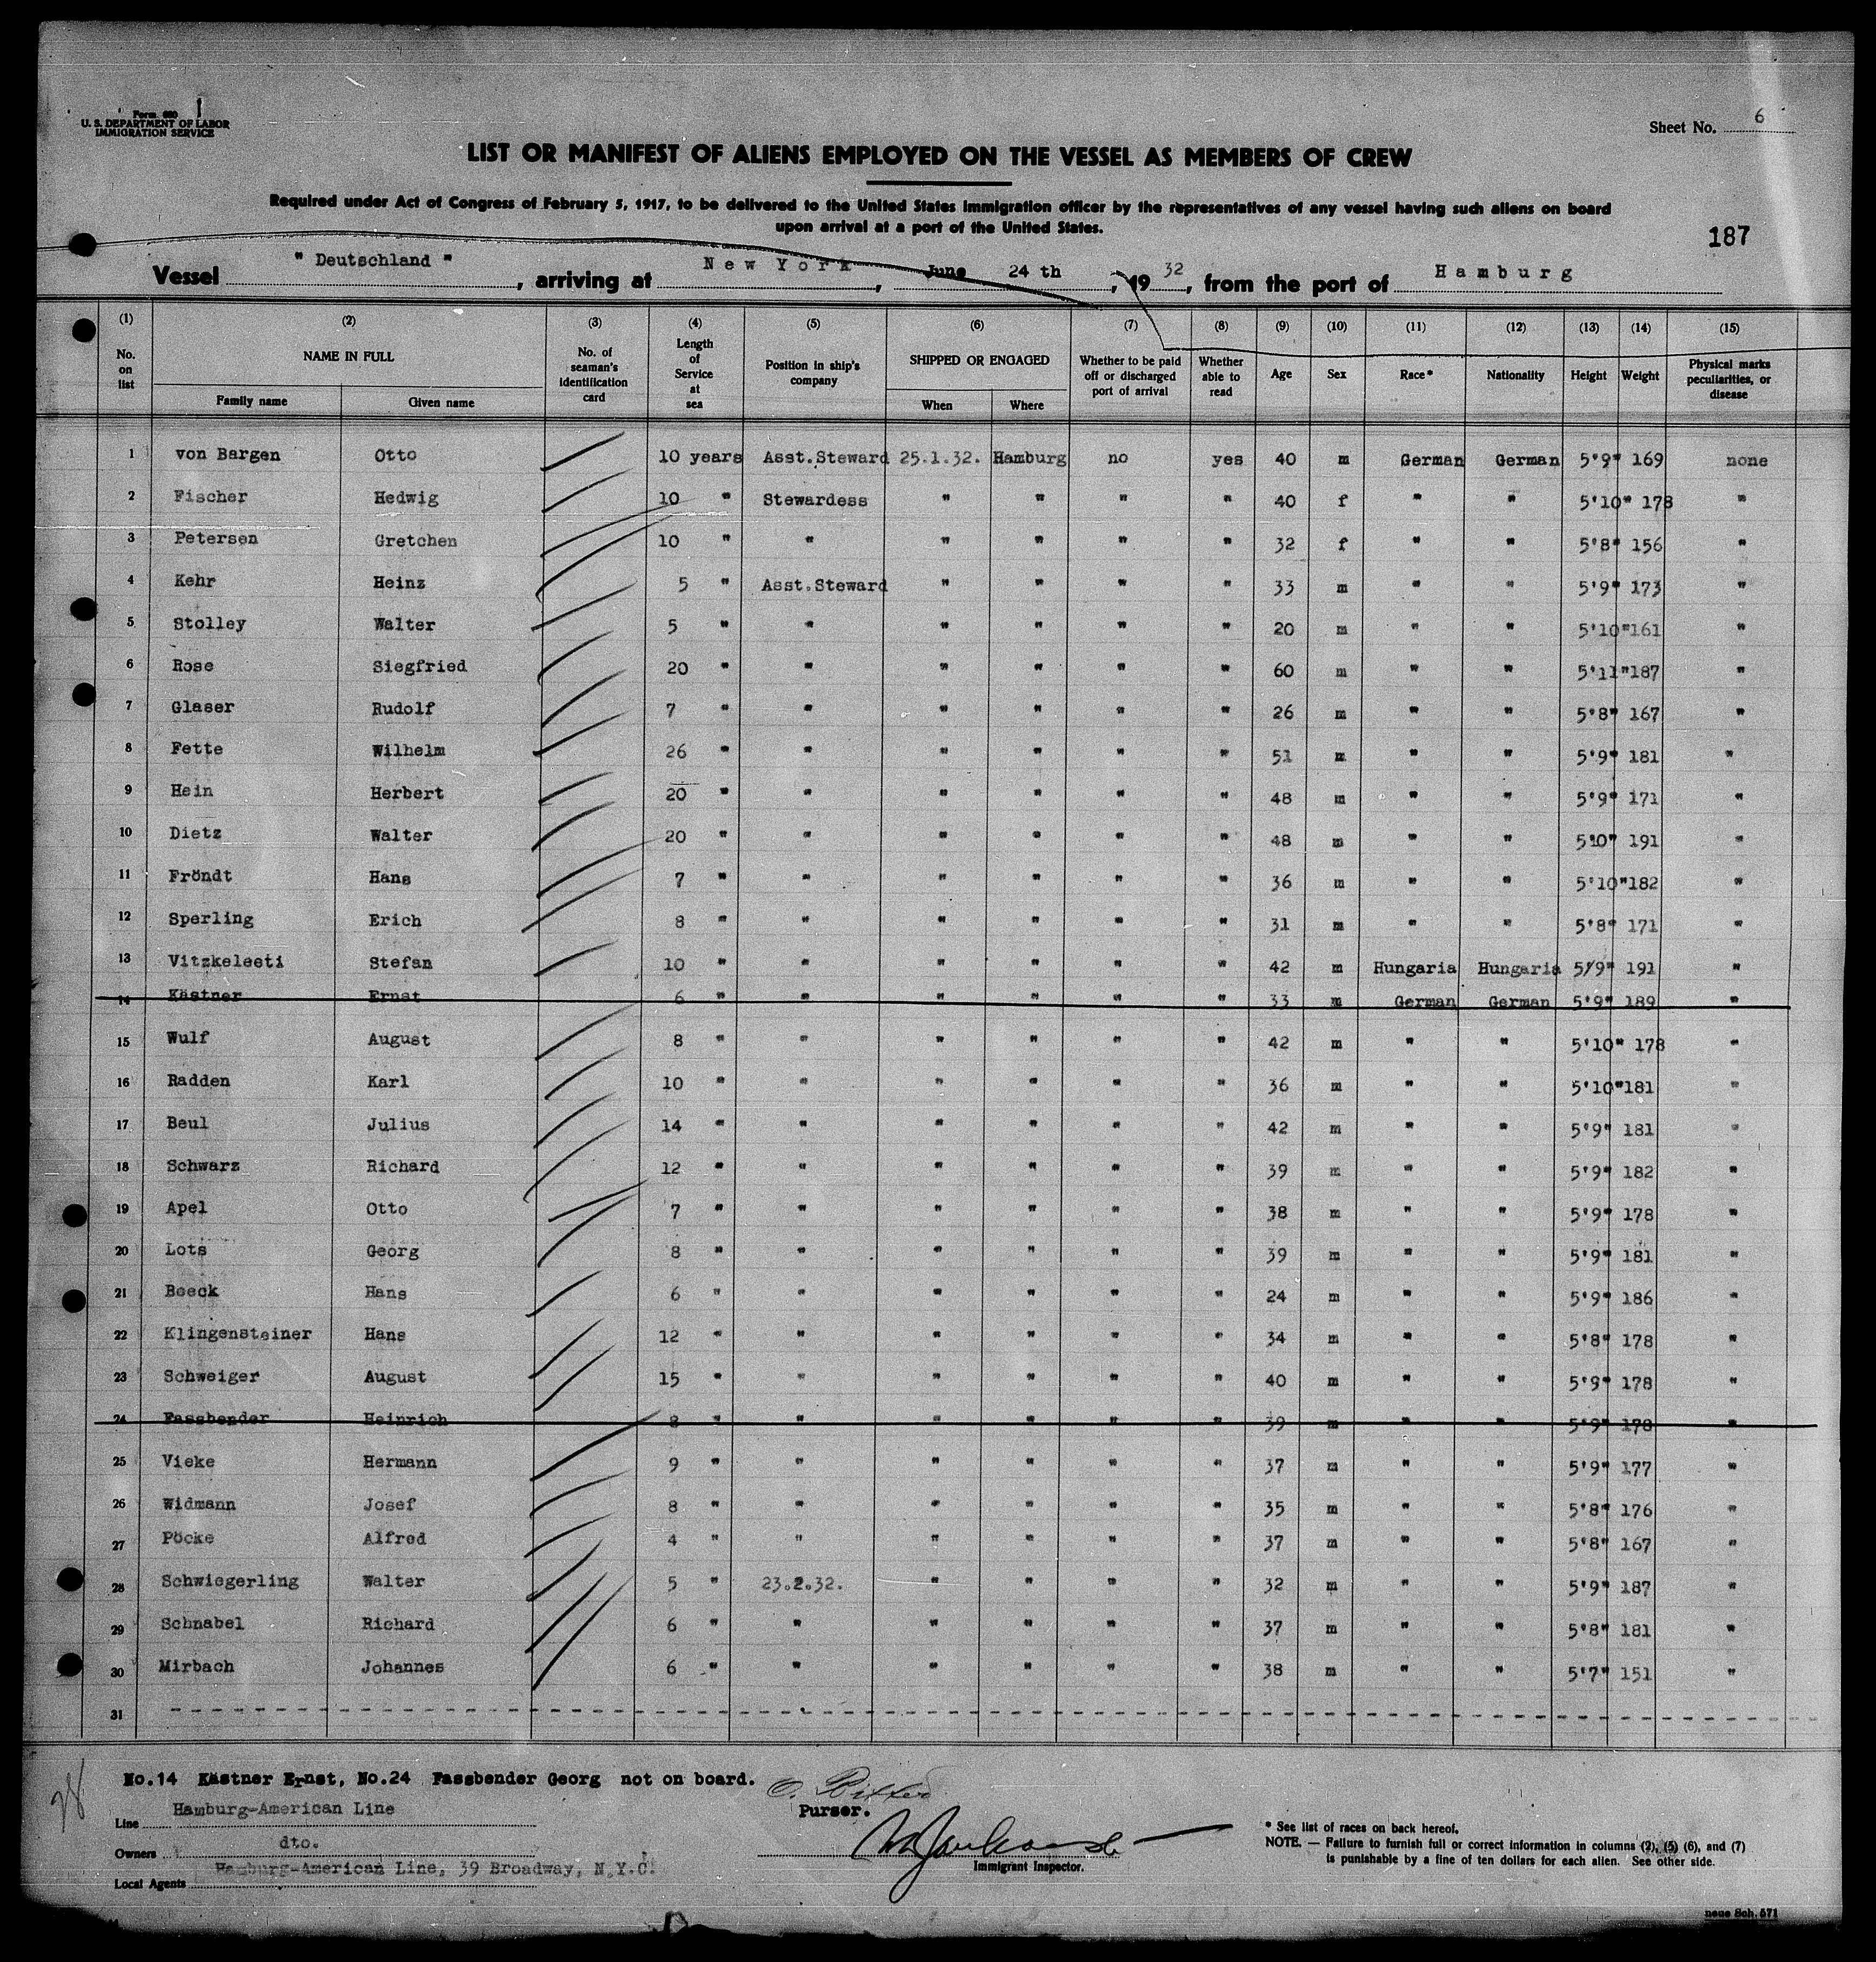 Form 680
U. S. DEPARTMENT OF LABOR
IMMIGRATION SERVICE
Sheet No. 6
LIST OR MANIFEST OF ALIENS EMPLOYED ON THE VESSEL AS MEMBERS OF CREW
Required under Act of Congress of February 5, 1917, to be delivered to the United States Immigration officer by the representatives of any vessel having such aliens on board
upon arrival at a port of the United States.
187
Vessel " Deutschland ", arriving at New York, June 24 th, 1932, from the port of Hamburg
(1) (2) (3) (4) (5) (6) (7) (8) (9) (10) (11) (12) (13) (14) (15)
No. on list NAME IN FULL No. of seaman's identification card Length of Service at sea Position in ship's company SHIPPED OR ENGAGED Whether to be paid off or discharged port of arrival Whether able to read Age Sex Race* Nationality Height Weight Physical marks peculiarities, or disease
Family name Given name When Where
1 von Bargen Otto 10 years Asst.Steward 25.1.32. Hamburg no yes 40 m German German 5'9" 169 none
2 Fischer Hedwig 10 " Stewardess " " " " 40 f " " 5'10" 178 "
3 Petersen Gretchen 10 " " " " " " 32 f " " 5'8" 156 "
4 Kehr Heinz 5 " Asst.Steward " " " " 33 m " " 5'9" 173 "
5 Stolley Walter 5 " " " " " " 20 m " " 5'10" 161 "
6 Rose Siegfried 20 " " " " " " 60 m " " 5'11" 187 "
7 Glaser Rudolf 7 " " " " " " 26 m " " 5'8" 167 "
8 Fette Wilhelm 26 " " " " " " 51 m " " 5'9" 181 "
9 Hein Herbert 20 " " " " " " 48 m " " 5'9" 171 "
10 Dietz Walter 20 " " " " " " 48 m " " 5'0" 191 "
11 Fröndt Hans 7 " " " " " " 36 m " " 5'10" 182 "
12 Sperling Erich 8 " " " " " " 31 m " " 5'8" 171 "
13 Vitzkeleeti Stefan 10 " " " " " " 42 m Hungaria Hungaria 5/9" 191 "
14 Kästner Ernst 6 " " " " " " 33 m German German 5'9" 189 "
15 Wulf August 8 " " " " " " 42 m " " 5'10" 178 "
16 Radden Karl 10 " " " " " " 36 m " " 5'10" 181 "
17 Beul Julius 14 " " " " " " 42 m " " 5'9" 181 "
18 Schwarz Richard 12 " " " " " " 39 m " " 5'9" 182 "
19 Apel Otto 7 " " " " " " 38 m " " 5'9" 178 "
20 Lots Georg 8 " " " " " " 39 m " " 5'9" 181 "
21 Boeck Hans 6 " " " " " " 24 m " " 5'9" 186 "
22 Klingensteiner Hans 12 " " " " " " 34 m " " 5'8" 178 "
23 Schweiger August 15 " " " " " " 40 m " " 5'9" 178 "
24 Fassbender Heinrich 8 " " " " " " 39 m " " 5'9" 178 "
25 Vieke Hermann 9 " " " " " " 37 m " " 5'9" 177 "
26 Widmann Josef 8 " " " " " " 35 m " " 5'8" 176 "
27 Pöcke Alfred 4 " " " " " " 37 m " " 5'8" 167 "
28 Schwiegerling Walter 5 " 23.2.32. " " " " 32 m " " 5'9" 187 "
29 Schnabel Richard 6 " " " " " " 37 m " " 5'8" 181 "
30 Mirbach Johannes 6 " " " " " " 38 m " " 5'7" 151 "
31
No.14 Kästner Ernst, No.24 Fassbender Georg not on board.
Line Hamburg-American Line
Purser.
Owners dto.
Local Agents Hamburg-American Line, 39 Broadway, N.Y.C.
Immigrant Inspector.
* See list of races on back hereof.
NOTE. — Failure to furnish full or correct information in columns (2), (5) (6), and (7)
is punishable by a fine of ten dollars for each alien. See other side.
neue Sch. 571